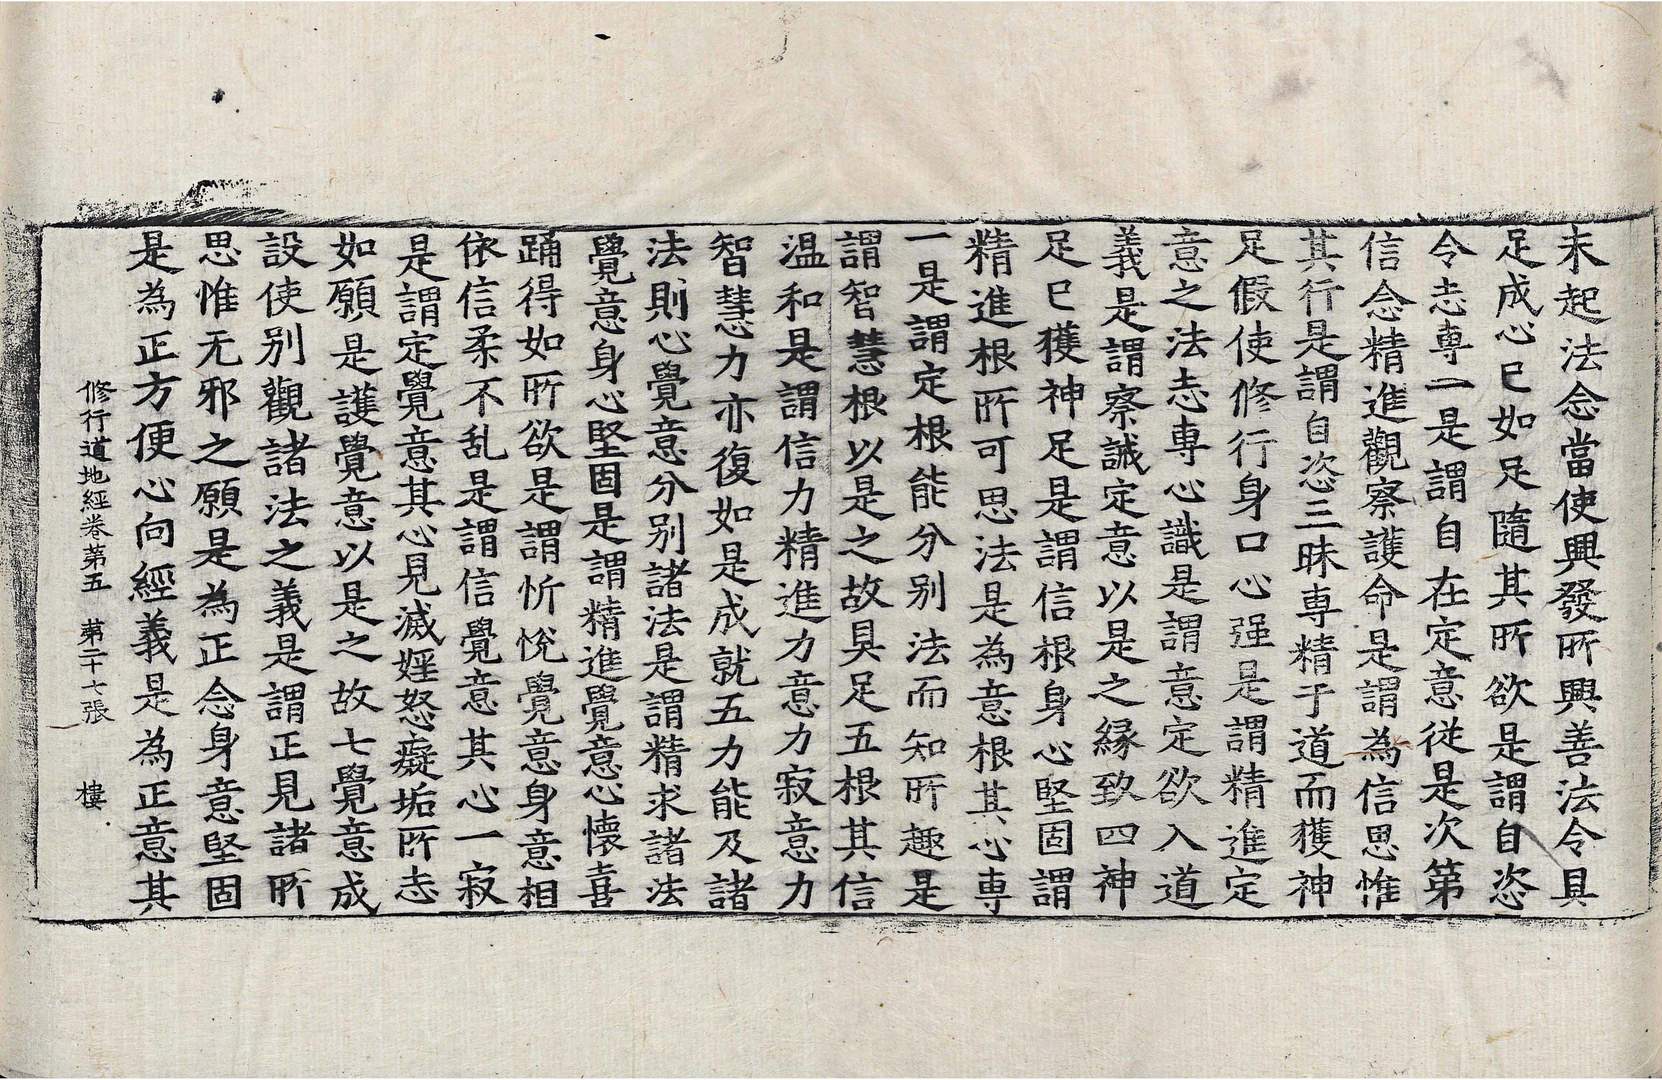 未起法念當使興發所興善法令具
足成心已如足隨其所欲是謂自恣
令志専一是謂自在定意從是次第
信念精進觀察護命是謂為信思惟
其行是謂自恣三昧専精于道而獲神
足假使修行身口心强是謂精進定
意之法志専心識是謂意定欲入道
義是謂察誡定意以是之縁致四神
足已獲神足是謂信根身心堅固謂
精進根所可思法是為意根其心専
一是謂定根能分別法而知所趣是
謂智慧根以是之故具足五根其信
温和是謂信力精進力意力寂意力
智慧力亦復如是成就五力能及諸
法則心覺意分別諸法是謂精求諸法
覺意身心堅固是謂精進覺意心懐喜
踊得如所欲是謂忻悅覺意身意相
依信柔不乱是謂信覺意其心一寂
是謂定覺意其心見滅婬怒癡垢所志
如願是護覺意以是之故七覺意成
設使別觀諸法之義是謂正見諸所
思惟无邪之願是為正念身意堅固
是為正方便心向經義是為正意其
修行道地經卷第五 第二十七張 樓